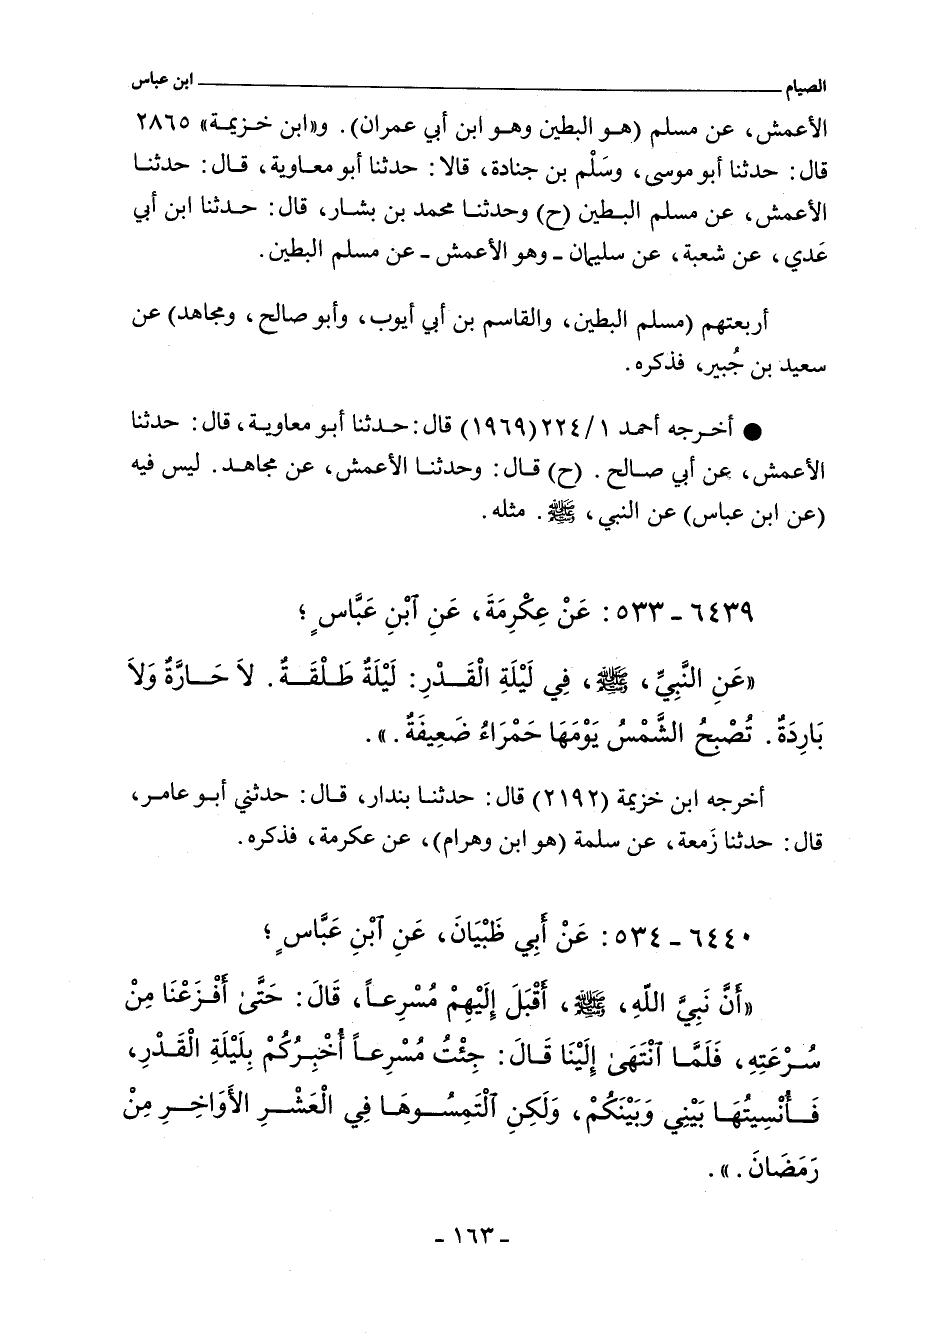 الصيام ـــــ ابن عباس
الأعمش، عن مسلم (هو البطين وهو ابن أبي عمران). و«ابن خزيمة» ٢٨٦٥
قال: حدثنا أبو موسى، وسَلْم بن جنادة، قالا: حدثنا أبو معاوية، قال: حدثنا
الأعمش، عن مسلم البطين (ح) وحدثنا محمد بن بشار، قال: حدثنا ابن أبي
عَدي، عن شعبة، عن سليمان ـ وهو الأعمش ـ عن مسلم البطين.
أربعتهم (مسلم البطين، والقاسم بن أبي أيوب، وأبو صالح، ومجاهد) عن
سعيد بن جُبير، فذكره.
● أخرجه أحمد ٢٢٤/١ (١٩٦٩) قال: حدثنا أبو معاوية، قال: حدثنا
الأعمش، عن أبي صالح. (ح) قال: وحدثنا الأعمش، عن مجاهد. ليس فيه
(عن ابن عباس) عن النبي، ﷺ. مثله.
٦٤٣٩ ـ ٥٣٣: عَنْ عِكْرِمَةَ، عَنِ ٱبْنِ عَبَّاسٍ؛
«عَنِ النَّبِيِّ، ﷺ، فِي لَيْلَةِ الْقَدْرِ: لَيْلَةٌ طَلْقَةٌ. لاَ حَارَّةٌ وَلاَ
بَارِدَةٌ. تُصْبِحُ الشَّمْسُ يَوْمَهَا حَمْرَاءُ ضَعِيفَةٌ.».
أخرجه ابن خزيمة (٢١٩٢) قال: حدثنا بندار، قال: حدثني أبو عامر،
قال: حدثنا زَمعة، عن سلمة (هو ابن وهرام)، عن عكرمة، فذكره.
٦٤٤٠ ـ ٥٣٤: عَنْ أَبِي ظَبْيَانَ، عَنِ ٱبْنِ عَبَّاسٍ؛
«أَنَّ نَبِيَّ اللّهِ، ﷺ، أَقْبَلَ إِلَيْهِمْ مُسْرِعاً، قَالَ: حَتَّىٰ أَفْزَعْنَا مِنْ
سُرْعَتِهِ، فَلَمَّا ٱنْتَهَىٰ إِلَيْنَا قَالَ: جِئْتُ مُسْرِعاً أُخْبِرُكُمْ بِلَيْلَةِ الْقَدْرِ،
فَأُنْسِيتُهَا بَيْنِي وَبَيْنَكُمْ، وَلَكِنِ ٱلْتَمِسُوهَا فِي الْعَشْرِ الأَوَاخِرِ مِنْ
رَمَضَانَ.».
ـ ١٦٣ ـ